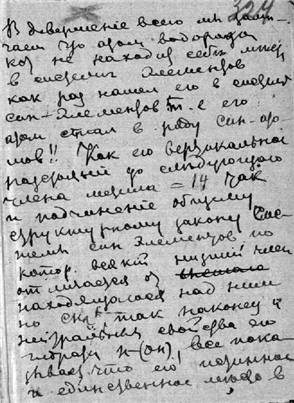 324
В довершение всего мы заме-
чаем что атом водорода
кот не находил себе места
в системе элементов
как раз нашел его в системе
син-элементов т. е его
атом стал в ряду син-ато
мов!! Как его вертикальное
расстояние до следующего
члена = 14 так
и подчинение общему
структурному закону сис-
темы син элементов по
котор. всякий низший член
отличается от
находящегося над ним
на CH так наконец и
нейтральные свойства его
гидрата H(OH), все пока
зывает что его
и единственное место в